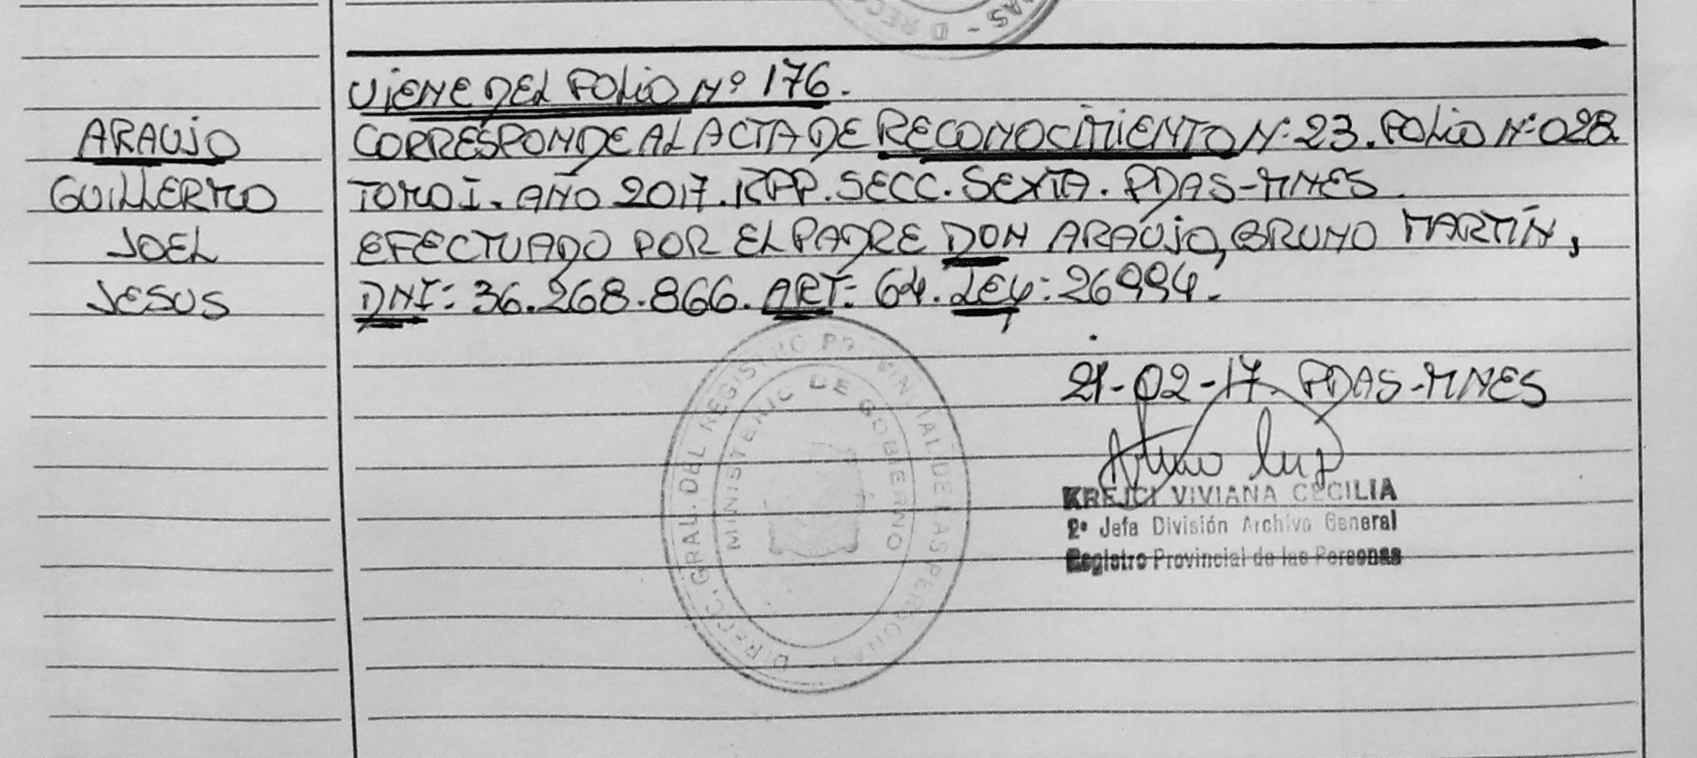 VIENE DEL FOLIO Nº 176.
ARAUJO
GUILLERMO
JOEL
JESUS
CORRESPONDE AL ACTA DE RECONOCIMIENTO Nº: 23. FOLIO Nº: 028.
TOMO I. AÑO 2017. RPP. SECC. SEXTA. PDAS-MNES.
EFECTUADO POR EL PADRE DON ARAUJO, BRUNO MARTÍN,
DNI: 36.268.866. ART: 64. LEY: 26994.
21-02-17 PDAS-MNES
KREJCI VIVIANA CECILIA
2ª Jefa División Archivo General
Registro Provincial de las Personas
DIRECC. GRAL. DEL REGISTRO PROVINCIAL DE LAS PERSONAS -
MINISTERIO DE GOBIERNO